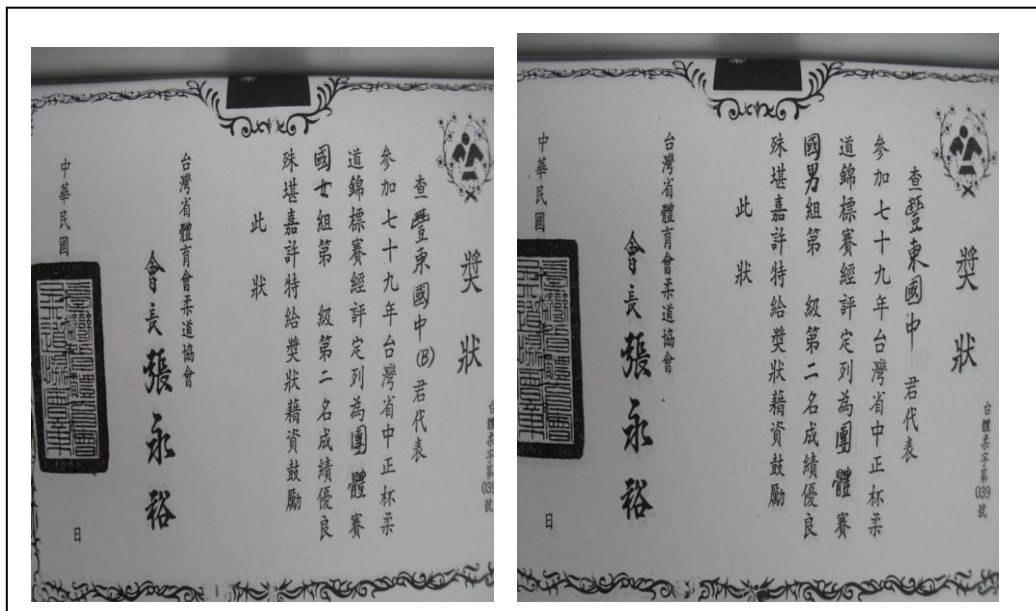 獎狀
台體柔字第039號
查豐東國中(B)君代表
參加七十九年台灣省中正杯柔
道錦標賽經評定列為團體賽
國女組第 級第二名成績優良
殊堪嘉許特給獎狀藉資鼓勵
此狀
台灣省體育會柔道協會
會長張永裕
中華民國 日
獎狀
台體柔字第039號
查豐東國中 君代表
參加七十九年台灣省中正杯柔
道錦標賽經評定列為團體賽
國男組第 級第二名成績優良
殊堪嘉許特給獎狀藉資鼓勵
此狀
台灣省體育會柔道協會
會長張永裕
中華民國 日